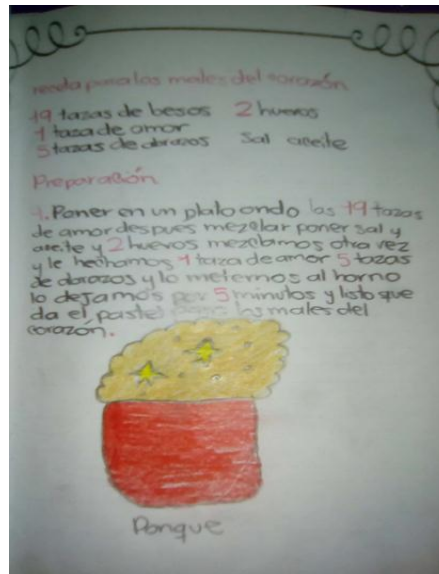 receta para los males del corazón
19 tazas de besos 2 huevos
1 taza de amor
5 tazas de abrazos Sal aceite
Preparación
1. Poner en un plato ondo las 19 tazas
de amor despues mezclar poner sal y
aceite y 2 huevos mezclamos otra vez
y le hechamos 1 taza de amor 5 tazas
de abrazos y lo metemos al horno
lo dejamos por 5 minutos y listo que
da el pastel para los males del
corazón.
Ponque